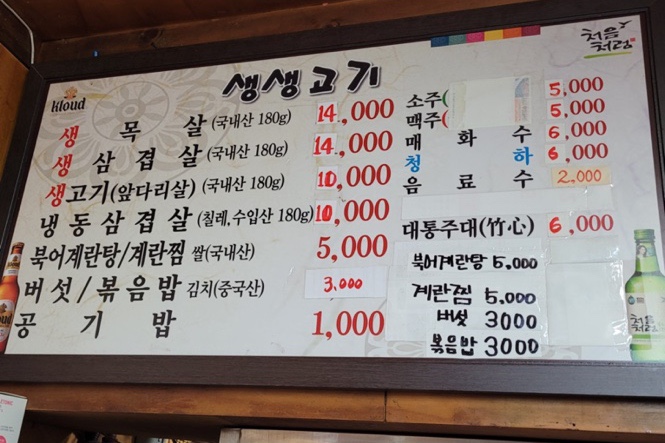 Kloud
생생고기
처음처럼
생목살(국내산 180g) 14,000
생삼겹살(국내산 180g) 14,000
생고기(앞다리살)(국내산 180g) 10,000
냉동삼겹살(칠레,수입산 180g) 10,000
북어계란탕/계란찜 쌀(국내산) 5,000
버섯/볶음밥 김치(중국산) 3,000
공기밥 1,000
소주( 5,000
맥주( 5,000
매화수 6,000
청하 6,000
음료수 2,000
대통주대(竹心) 6,000
북어계란탕 5,000
계란찜 5,000
버섯 3000
볶음밥 3000
Kloud
처음처럼